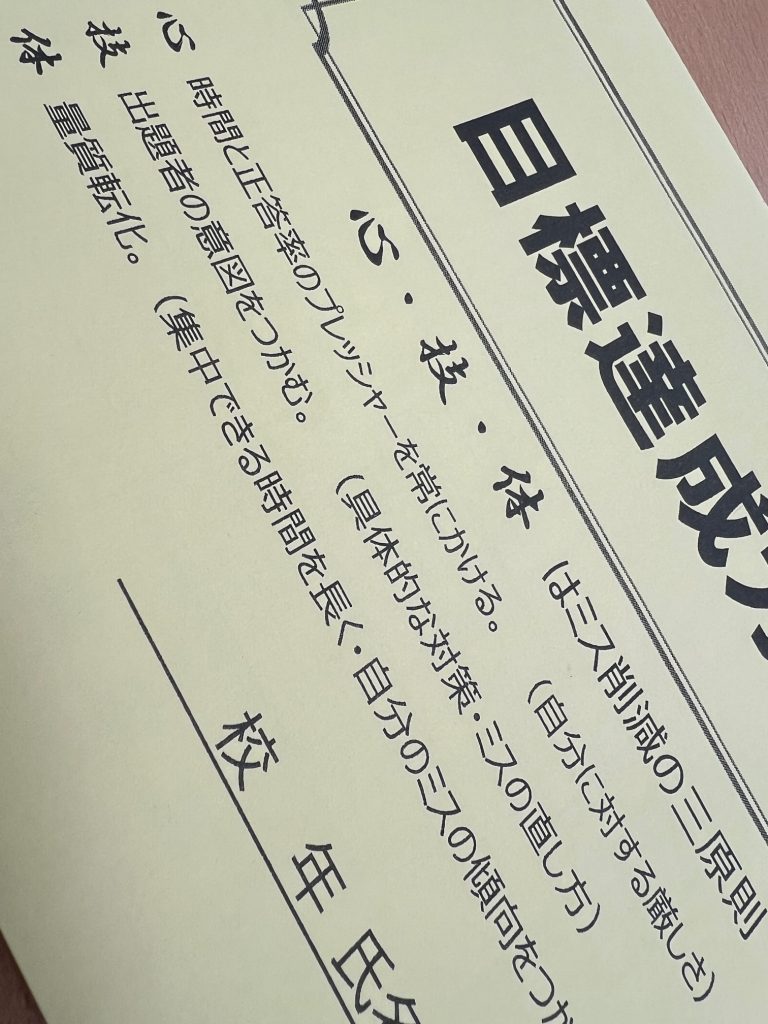 目標達成
心・技・体 はミス削減の三原則
心 時間と正答率のプレッシャーを常にかける。 (自分に対する厳しさ)
技 出題者の意図をつかむ。 (具体的な対策・ミスの直し方)
体 量質転化。 (集中できる時間を長く・自分のミスの傾向をつか
校 年 氏名